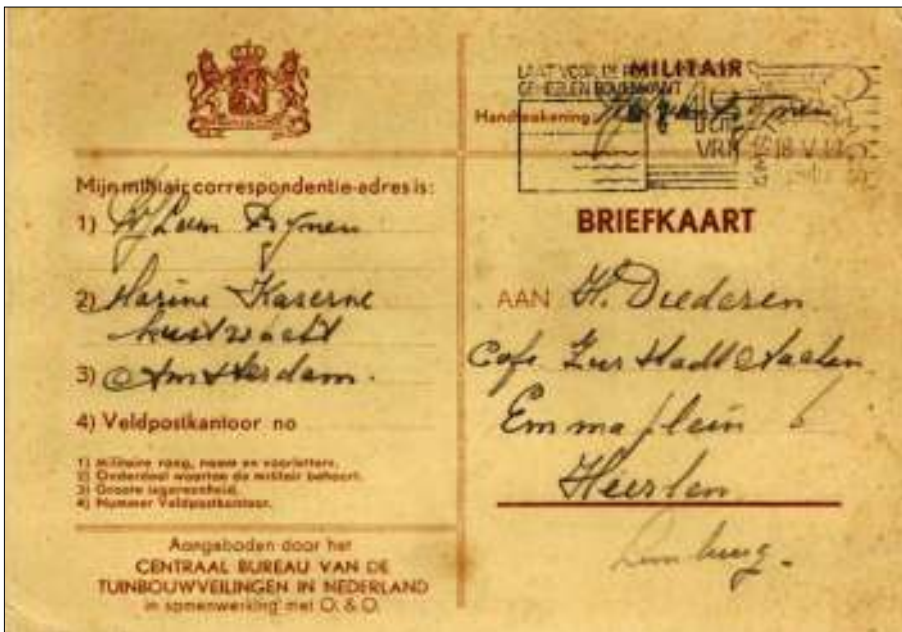 Mijn militair correspondentie-adres is:
1)
2) Marine Kaserne
Kustwacht
3) Amsterdam.
4) Veldpostkantoor no
1) Militaire rang, naam en voorletters.
2) Onderdeel waartoe de militair behoort.
3) Groote legereenheid.
4) Nummer Veldpostkantoor.
Aangeboden door het
CENTRAAL BUREAU VAN DE
TUINBOUWVEILINGEN IN NEDERLAND
in samenwerking met O. & O.
MILITAIR
LAAT VOOR DE
GEHEELEN BOVENKANT
Handteekening:
18 V
BRIEFKAART
AAN H. Diederen
Cafe Zur Stadt Aachen
Emmaplein
Heerlen
Limburg.